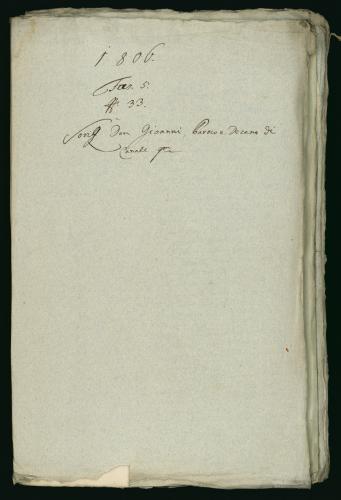 1806.
Fas. 5.
№. 33.
Don Giovanni, Paroco e Decano di
Canale